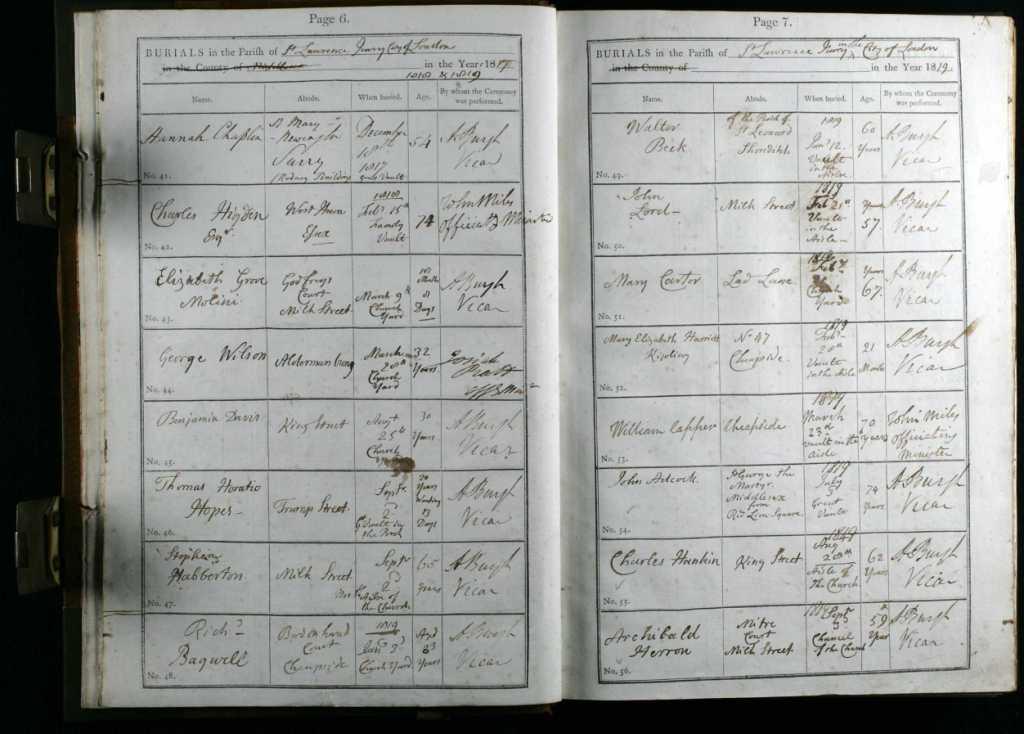 Page 6.
BURIALS in the Parish of St. Lawrence Jewry City of London
in the County of in the Year 1817
1818 & 1819
Name. Abode. When buried. Age. By whom the Ceremony was performed.
Hannah Chaplin
St Mary
Newington
Surry
Rodney Buildings
December
18th
1817
Vault
54
A Burgh
Vicar
No. 41.
Charles Higden
Esqr.
West Ham
Essex
1818
Feby 15th
Family
Vault
74
John Miles
Offict. Minister
No. 42.
Elizabeth Grove
Molini
Godfreys
Court
Milk Street
March 9th
Church
Yard
Days
A Burgh
Vicar
No. 43.
George Wilson
Aldermanbury
March
20th
Church
Yard
32
Years
Josiah
Pratt
No. 44.
Benjamin Davis
King Street
Augt
25th
Church
30
Years
A Burgh
Vicar
No. 45.
Thomas Horatio
Hopes
Trump Street
Septr.
2
Vault in
the
Years
Days
A Burgh
Vicar
No. 46.
Stephen
Habberton
Milk Street
Septr
Aisle of
the Church
65
Years
A Burgh
Vicar
No. 47.
Richd
Bagwell
Court
Cheapside
1819
Jany 3d
Church Yard
Aged
63
Years
A Burgh
Vicar
No. 48.
Page 7.
BURIALS in the Parish of St Lawrence Jewry in the City of London
in the County of in the Year 1819.
Name. Abode. When buried. Age. By whom the Ceremony was performed.
Walter
Beck
of the Parish of
St Leonard
Shoreditch
1819
Jany 12.
Vault
in the
Aisle
60
Years
A Burgh
Vicar
No. 49.
John
Lord
Milk Street
1819
Feby 21st
Vault
in the
Aisle
Years
57.
A Burgh
Vicar
No. 50.
Mary Carter
Lad Lane
Church
Yard
Years
67.
A Burgh
Vicar
No. 51.
Mary Elizabeth Harriett
No 47
Cheapside
1819
Feby.
28th
Vault
in the Aisle
21
Months
A Burgh
Vicar
No. 52.
William Capper
Cheapside
March
23d
Vault in the
aisle
70
Years
John Miles
Officiating
Minister
No. 53.
John Adcock
St George the
Martyr
Middlesex
from
Red Lion Square
1819
July
5th
Great
Vault
74
Years
A Burgh
Vicar
No. 54.
Charles Hunkin
King Street
1819
Aug
28th
Aisle of
the Church
62
Years
A Burgh
Vicar
No. 55.
Archibald
Herron
Mitre
Court
Milk Street
Septr
5
Chancel
of the Church
59
Year
A Burgh
Vicar
No. 56.